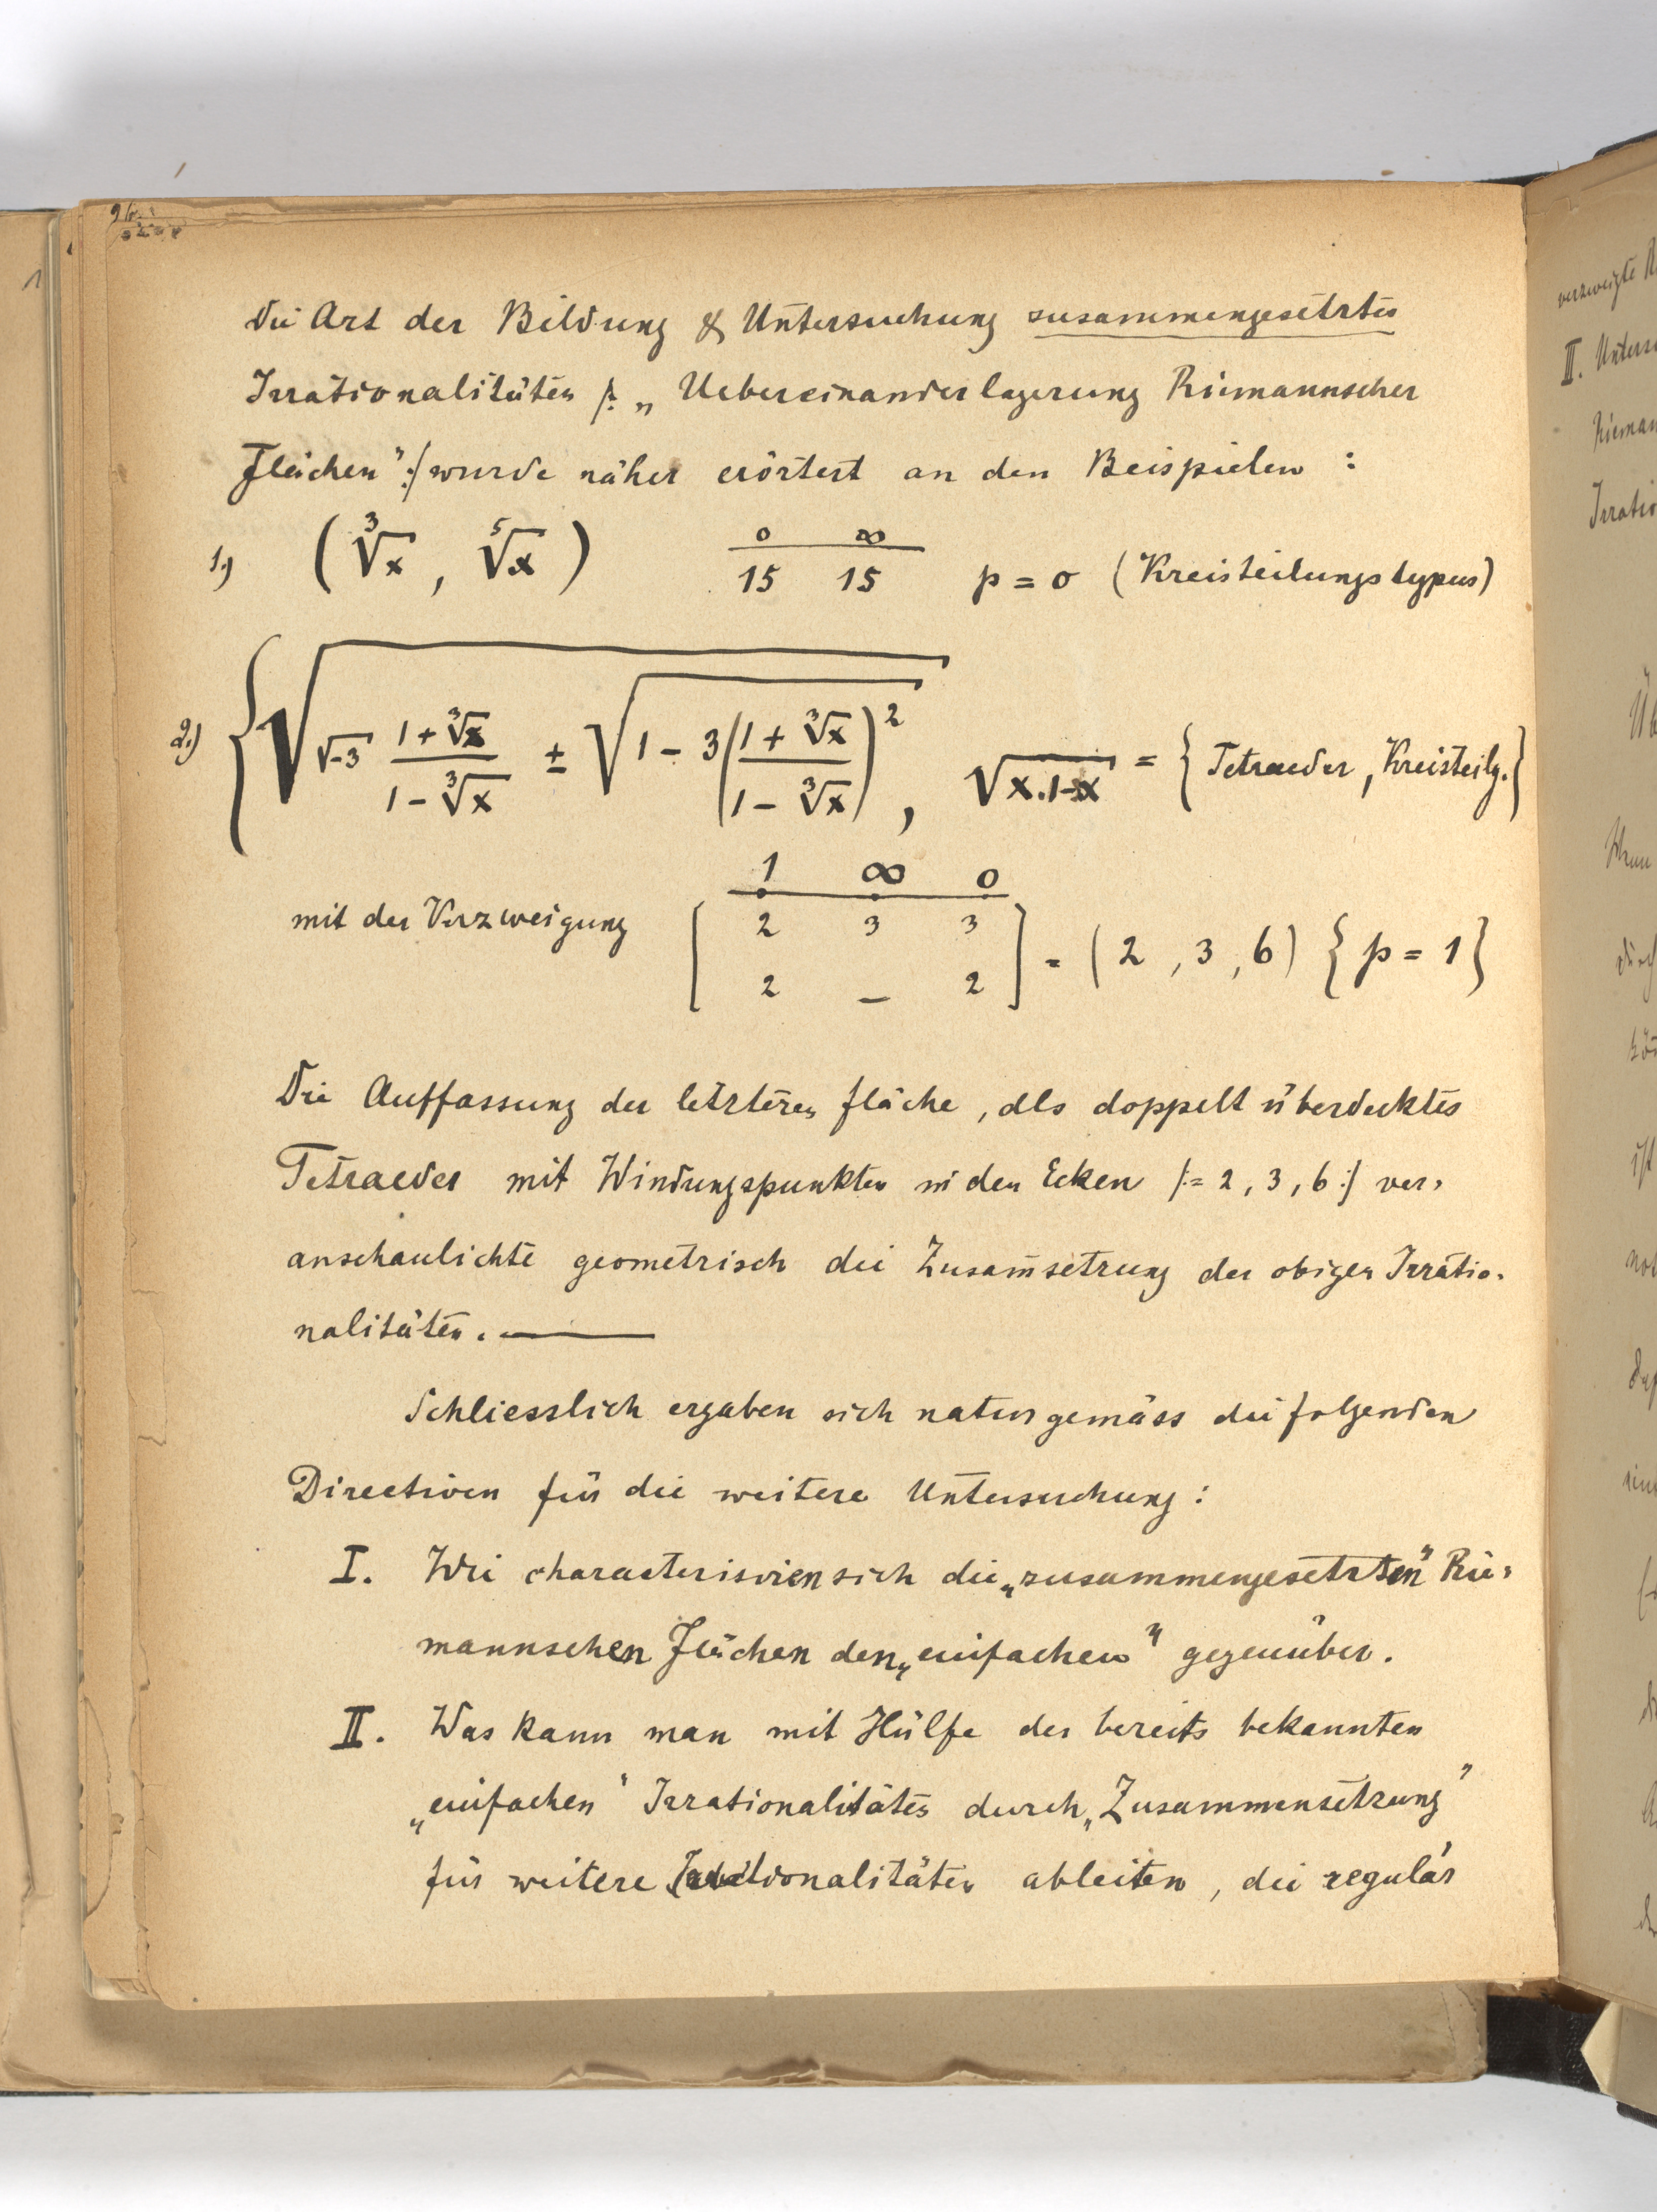 96.
Die Art der Bildung & Untersuchung zusammengesetzter
Irrationalitäten /: „Uebereinanderlagerung Riemannscher
Flächen" :/ wurde näher erörtert an den Beispielen :
1.) (∛x, ⁵√x) 0 ∞ / 15 15 p = 0 (Kreisteilungstypus)
2.) { √( √-3 (1+∛x)/(1-∛x) ± √( 1 - 3((1+∛x)/(1-∛x))² ) ) , √(x.1-x) = { Tetraeder, Kreisteilg. }
1 ∞ 0
mit der Verzweigung [ 2 3 3
2 — 2 ] = (2, 3, 6) { p = 1 }
Die Auffassung der letzteren Fläche, als doppelt überdecktes
Tetraeder mit Windungspunkten in den Ecken /:= 2, 3, 6 :/ ver-
anschaulichte geometrisch die Zusam̅setzung der obigen Irratio-
nalitäten. —
Schliesslich ergaben sich naturgemäss die folgenden
Directiven für die weitere Untersuchung :
I. Wie characterisiren sich die „zusammengesetzten" Rie-
mannschen Flächen den „einfachen" gegenüber.
II. Was kann man mit Hülfe der bereits bekannten
„einfachen" Irrationalitäten durch „Zusammensetzung"
für weitere Irrationalitäten ableiten, die regulär